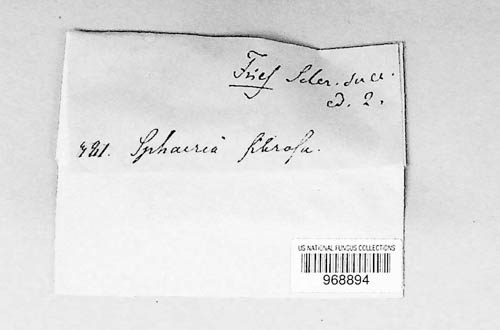 Fries Scler. suec.
ed. 2.
421. Sphaeria fibrosa.
US NATIONAL FUNGUS COLLECTIONS
968894